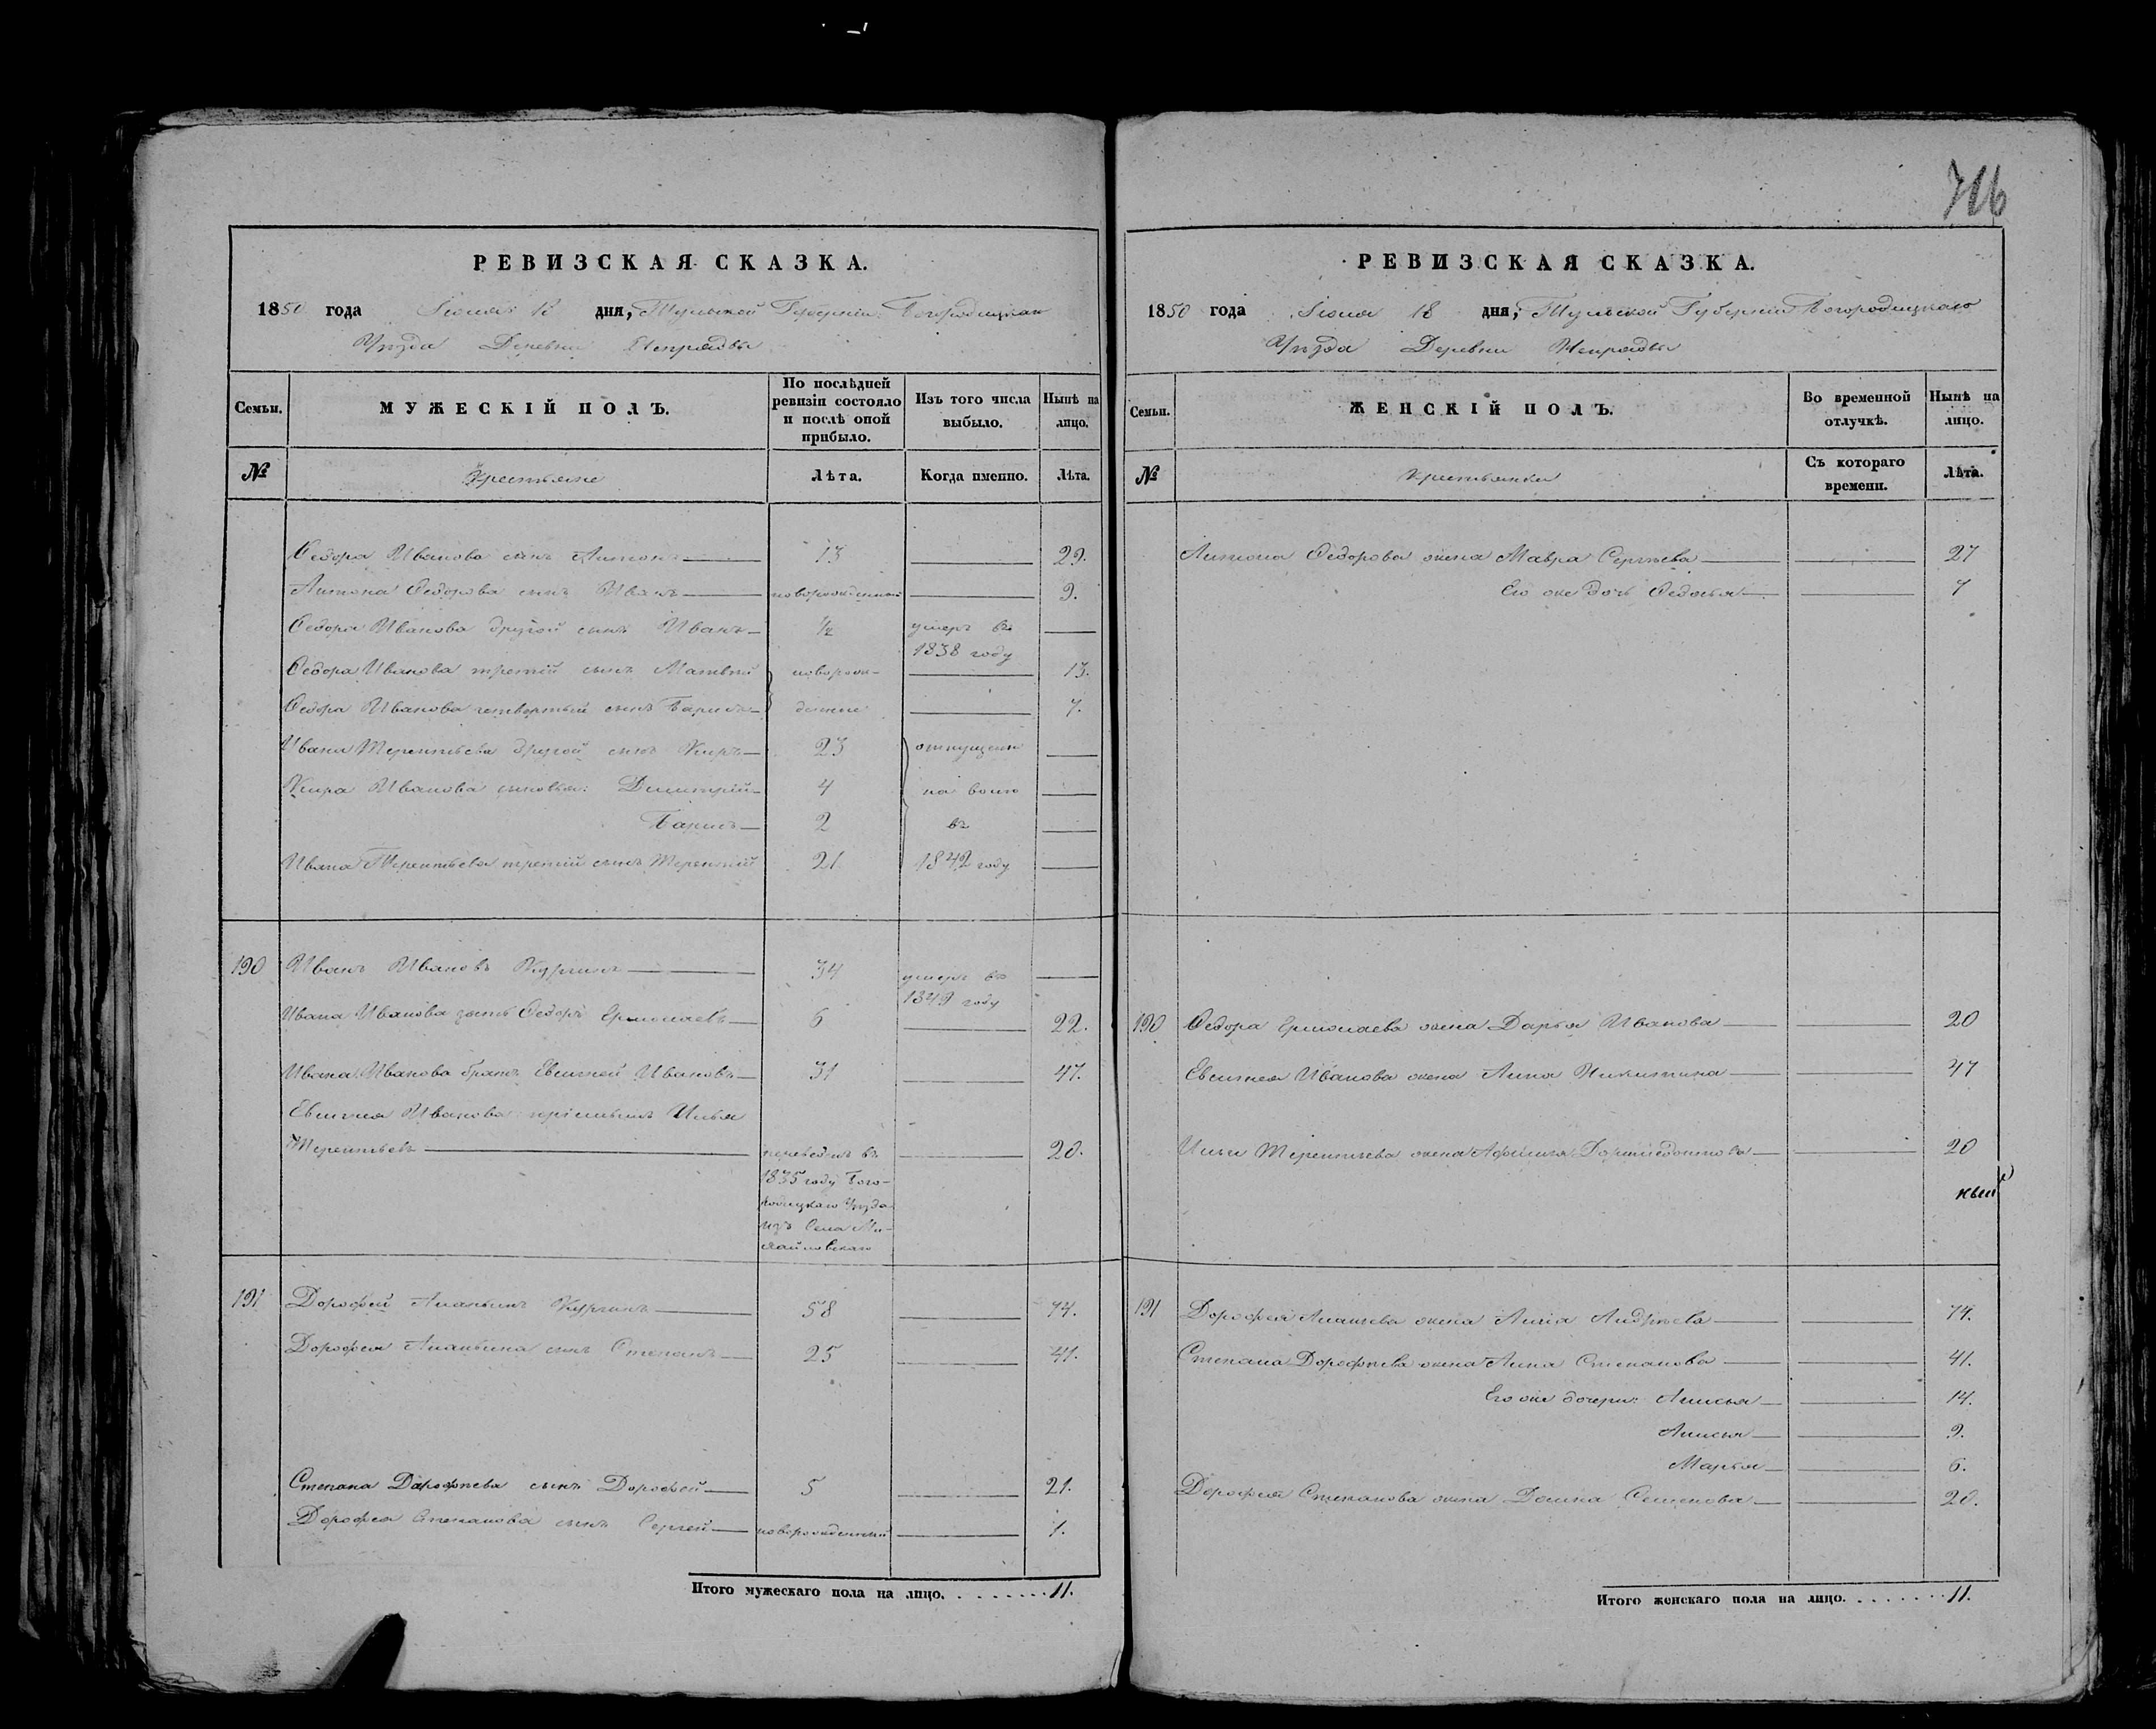 716
РЕВИЗСКАЯ СКАЗКА.
1850 года Іюня 18 дня, Тульской Губерніи Богородицкаго
Уѣзда Деревни Непрядвы
Семьи. МУЖЕСКІЙ ПОЛЪ. По послѣдней ревизіи состояло и послѣ оной прибыло. Изъ того числа выбыло. Нынѣ на лицо.
№ Крестьяне Лѣта. Когда именно. Лѣта.
Федора Иванова сынъ Антонъ 13 29.
Антона Федорова сынъ Иванъ новорожденный 9.
Федора Иванова другой сынъ Иванъ 1/2 умеръ въ 1838 году
Федора Иванова третій сынъ Матвей новорож- 13.
Федора Иванова четвертый сынъ Барисъ денные 7.
Ивана Терентьева другой сынъ Киръ 23 отпущены
Кира Иванова сыновья: Димитрій 4 на волю
Барисъ 2 въ
Ивана Терентьева третій сынъ Терентій 21 1842 году
190 Иванъ Ивановъ Кургинъ 34 умеръ въ 1849 году
Ивана Иванова зять Федоръ Ермолаевъ 6 22.
Ивана Иванова братъ Евсигней Ивановъ 31 47.
Евсигнея Иванова пріемышъ Илья
Терентьевъ переведенъ въ 20.
1835 году Бого-
родицкаго Уѣзда
изъ Села Ми-
хайловскаго
191 Дорофей Ананьинъ Кургинъ 58 74.
Дорофея Ананьина сынъ Степанъ 25 41.
Степана Дорофѣева сынъ Дорофей 5 21.
Дорофея Степанова сынъ Сергей новорожденный 1.
Итого мужескаго пола на лицо. 11.
РЕВИЗСКАЯ СКАЗКА.
1850 года Іюня 18 дня, Тульской Губерніи Богородицкаго
Уѣзда Деревни Непрядвы
Семьи. ЖЕНСКІЙ ПОЛЪ. Во временной отлучкѣ. Нынѣ на лицо.
№ Крестьянки Съ котораго времени. Лѣта.
Антона Федорова жена Мавра Сергѣева 27
Его же дочь Федосья 7
190 Федора Ермолаева жена Дарья Иванова 20
Евсигнея Иванова жена Анна Никитина 47
Ильи Терентьева жена Афимья 20
191 Дорофея Ананьева жена Андрѣева 74.
Степана Дорофѣева жена Анна Степанова 41.
Его же дочери: Анисья 14.
Анисья 9.
Марья 6.
Дорофея Степанова жена Домна Семенова 20.
Итого женскаго пола на лицо. 11.